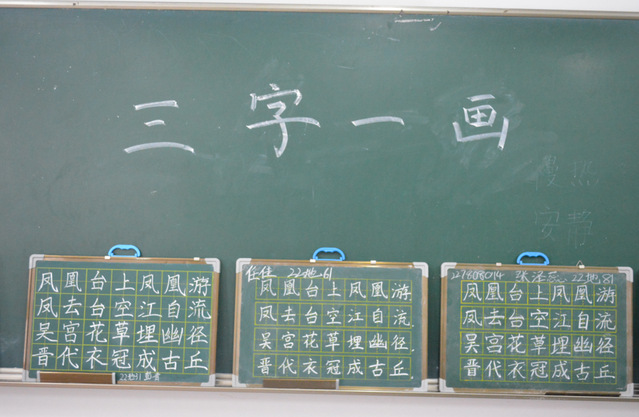 三字一画
安静
凤凰台上凤凰游
凤去台空江自流
吴宫花草埋幽径
晋代衣冠成古丘
22地-61
凤凰台上凤凰游
凤去台空江自流.
吴宫花草埋幽径.
晋代衣冠成古丘.
22地81
凤凰台上凤凰游
凤去台空江自流
吴宫花草埋幽径
晋代衣冠成古丘